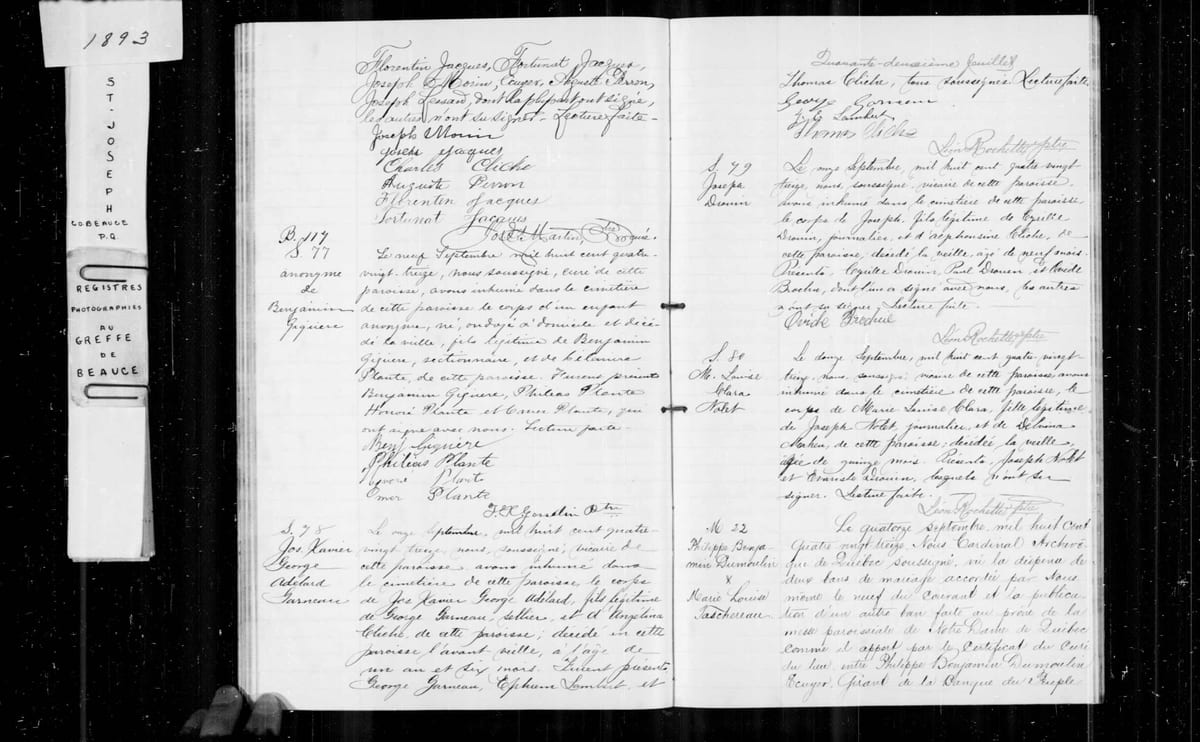 1893
ST-JOSEPH
CO.BEAUCE
P.Q.
REGISTRES
PHOTOGRAPHIES
AU
GREFFE
DE
BEAUCE
Florentin Jacques, Fortunat Jacques,
Joseph Morin, Ecuyer, August Perron,
Joseph Lessard, dont la plupart ont signé,
les autres n'ont su signer - Lecture faite -
Joseph Morin
Joseph Jacques
Charles Cliche
Auguste Perron
Florentin Jacques
Fortunat Jacques
Jos. Martin,
B. 117
S. 77
anonyme
de
Benjamin
Giguère
Le neuf Septembre mil huit cent quatre-
vingt-treize, nous soussigné, curé de cette
paroisse, avons inhumé dans le cimetière
de cette paroisse le corps d'un enfant
anonyme, né, ondoyé à domicile et décé-
dé la veille, fils légitime de Benjamin
Giguère, sectionnaire, et de
Plante, de cette paroisse. Furent présents
Benjamin Giguère, Philéas Plante
Honoré Plante et Omer Plante, qui
ont signé avec nous. Lecture faite.
Benj Giguère
Philéas Plante
Honoré Plante
Omer Plante
Ptre
S. 78
Jos. Xavier
George
Adélard
Garneau
Le onze Septembre, mil huit cent quatre-
vingt treize, nous, soussigné, vicaire de
cette paroisse, avons inhumé dans
le cimetière de cette paroisse, le corps
de Jos Xavier George Adélard, fils légitime
de George Garneau, sellier, et d'Angélina
Cliche, de cette paroisse; décédé en cette
paroisse l'avant veille, à l'âge de
un an et six mois. Furent présents
George Garneau, Ephrem Lambert, et
Quarante deuxième feuillet
Thomas Cliche, tous soussignés. Lecture faite.
George Garneau
Lambert
Thomas Cliche
Léon Rochette ptre
S. 79
Joseph
Drouin
Le onze Septembre, mil huit cent quatre vingt
treize, nous, soussigné, vicaire de cette paroisse,
avons inhumé dans le cimetière de cette paroisse
le corps de Joseph, fils légitime de Cyrille
Drouin, journalier, et d'Alphonsine Cliche, de
cette paroisse, décédé la veille, agé de neuf mois.
Présents, Cyrille Drouin, Paul Drouin, et Ovide
dont l'un a signé avec nous, les autres
n'ont su signer. Lecture faite.
Ovide
Léon Rochette ptre
S. 80
M. Louise
Clara
Nolet
Le douze Septembre, mil huit cent quatre vingt-
treize, nous, soussigné, vicaire de cette paroisse, avons
inhumé dans le cimetière de cette paroisse, le
corps de Marie Louise Clara, fille légitime
de Joseph Nolet, journalier, et de Delvina
Maheu, de cette paroisse; décédée la veille,
âgée de quinze mois. Présents, Joseph Nolet
et Evariste Drouin, lesquels n'ont su
signer. Lecture faite.
Léon Rochette ptre
M 22
Philippe Benja-
min Dumoulin
x
Marie Louise
Taschereau
Le quatorze septembre mil huit cent
quatre vingt treize, Nous Cardinal Archevê-
que de Québec soussigné, vû la dispense de
deux bans de mariage accordée par Nous
même le neuf du courant et la publica-
tion d'un autre ban faite au prône de la
messe paroissiale de Notre Dame de Québec
comme il appert par le certificat du Curé
du lieu, entre Philippe Benjamin Dumoulin
Ecuyer, Gérant de la Banque du Peuple